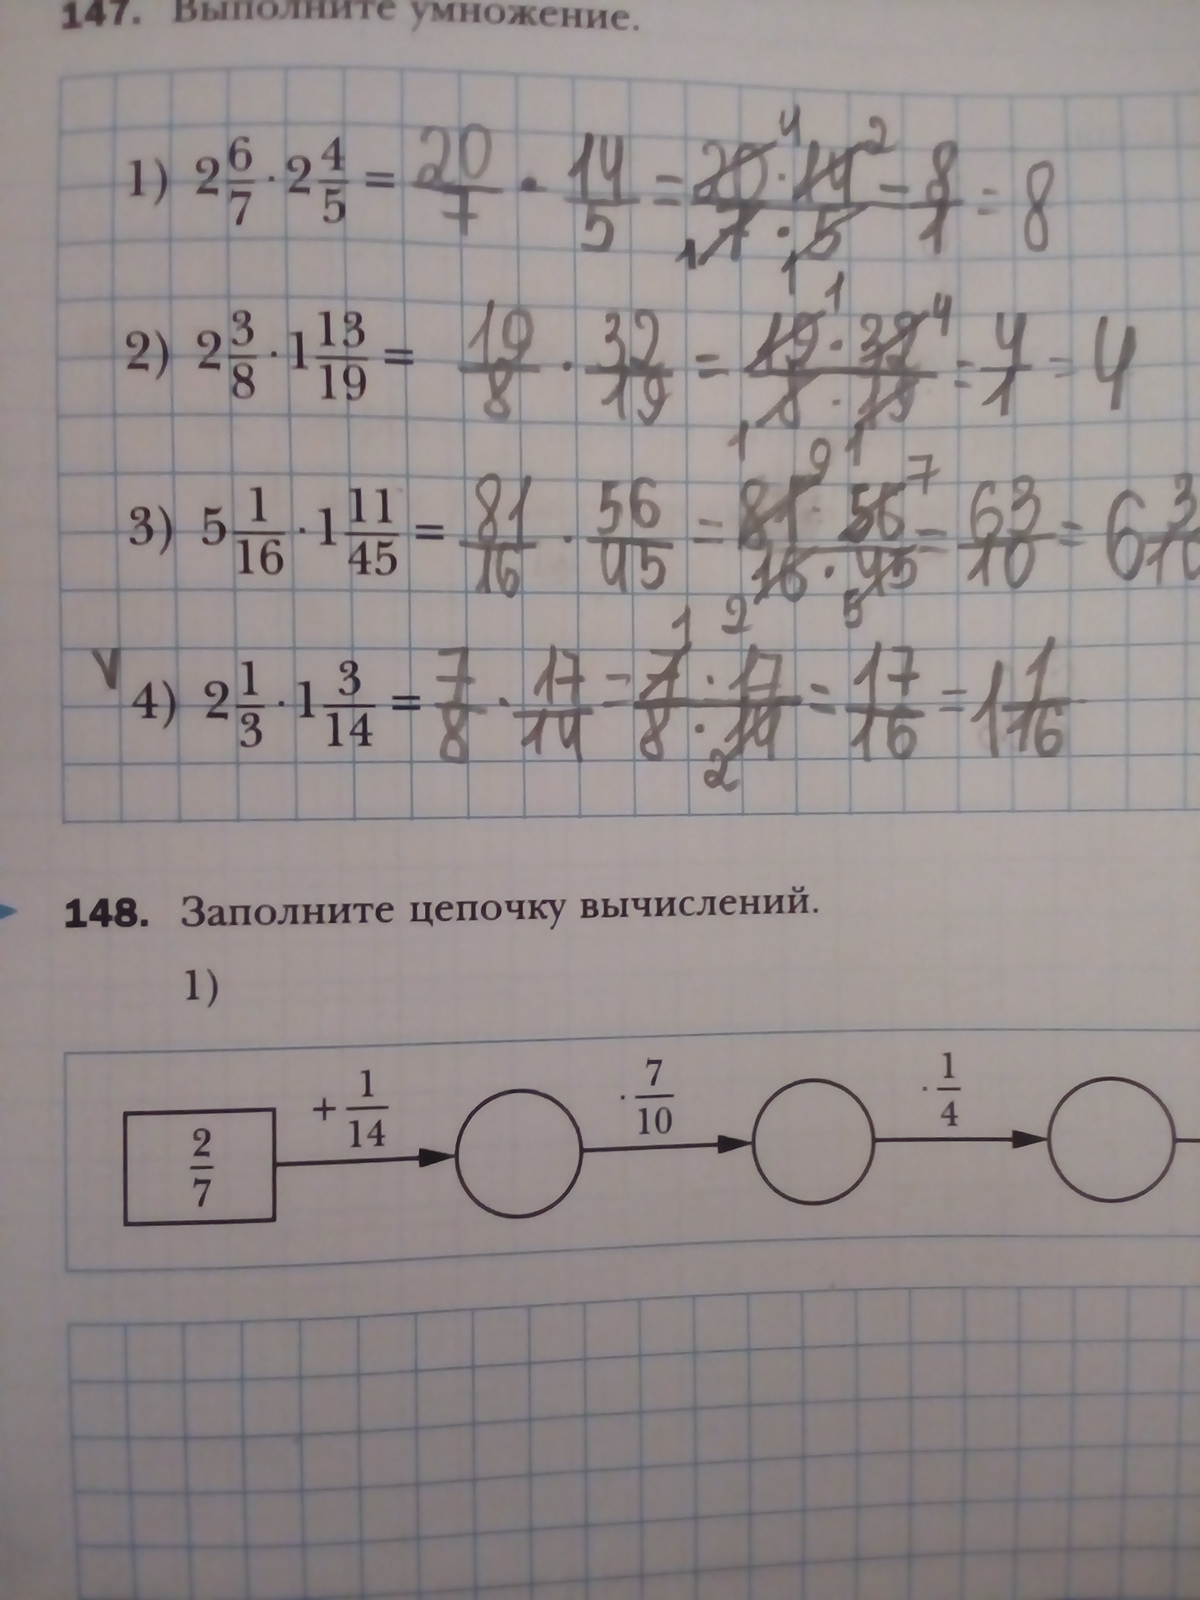 147. Выполните умножение.
1) 2 6/7 · 2 4/5 = 20/7 · 14/5 = 20 4 · 14 2 / 1 7 · 5 1 = 8/1 = 8
2) 2 3/8 · 1 13/19 = 19/8 · 32/19 = 19 1 · 32 4 / 8 1 · 19 1 = 4/1 = 4
3) 5 1/16 · 1 11/45 = 81/16 · 56/45 = 81 9 · 56 7 / 16 2 · 45 5 = 63/10 = 6 3/10
V 4) 2 1/3 · 1 3/14 = 7/8 · 17/14 = 7 1 · 17 / 8 · 14 2 = 17/16 = 1 1/16
148. Заполните цепочку вычислений.
1)
2/7 + 1/14 · 7/10 · 1/4